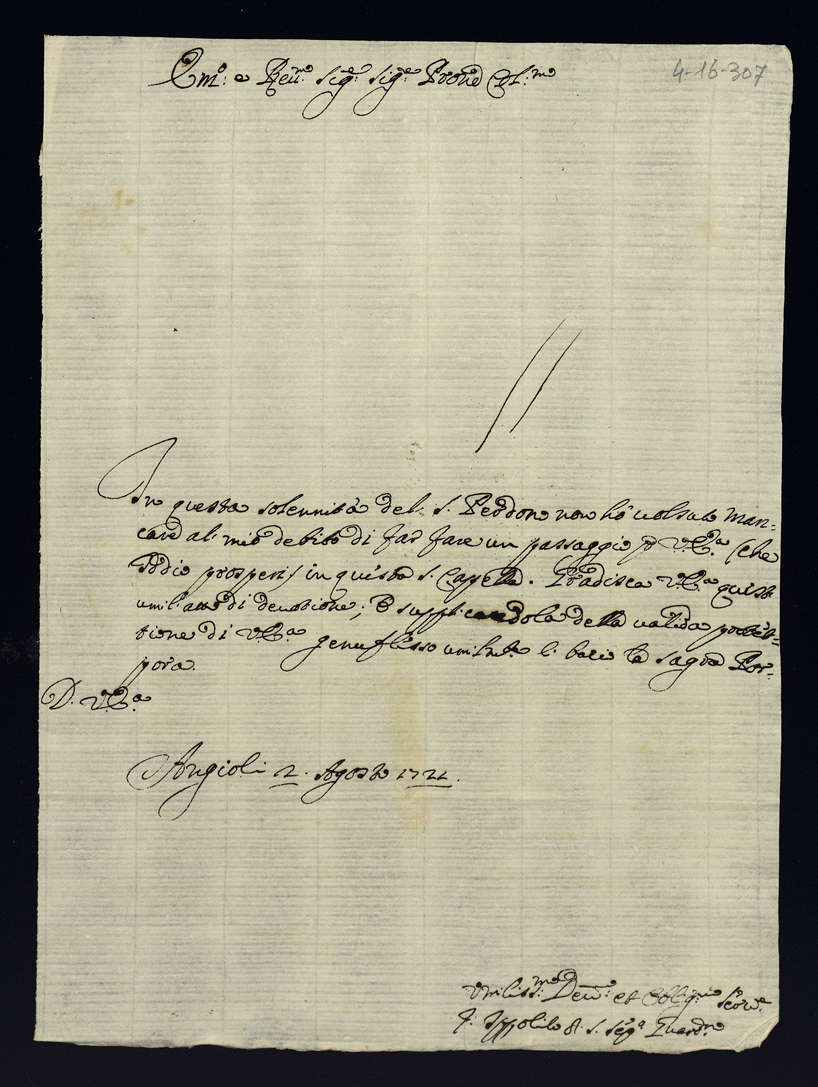 Em.º e Reu.mo Sig.e Sig.e Prone Col.mo
4-16-307
In questa solennità del S. Perdono non hò uolsuto man-
care al mio debito di far fare un passaggio p V.Em.a (che
Iddio prosperi) in questa S. Capella. Gradisca V.Em.a questo
umil atto di deuotione; E supplicandola della ualida protet-
tione di V.Em.a genuflesso umilmte li bacio la sagra Por-
pora.
D. V.Em.a
Angioli 2. Agosto 1721.
Vmiliss.mo Deu.mo et Oblig.mo Seru.e
F. Ippolito Guard.no